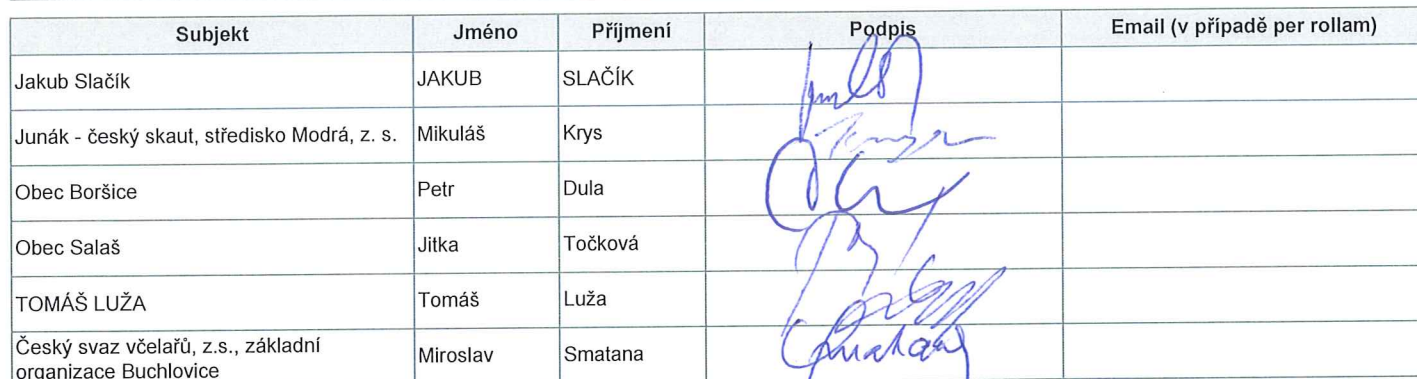 Subjekt Jméno Příjmení Podpis Email (v případě per rollam)
Jakub Slačík JAKUB SLAČÍK
Junák - český skaut, středisko Modrá, z. s. Mikuláš Krys
Obec Boršice Petr Dula
Obec Salaš Jitka Točková
TOMÁŠ LUŽA Tomáš Luža
Český svaz včelařů, z.s., základní
organizace Buchlovice Miroslav Smatana